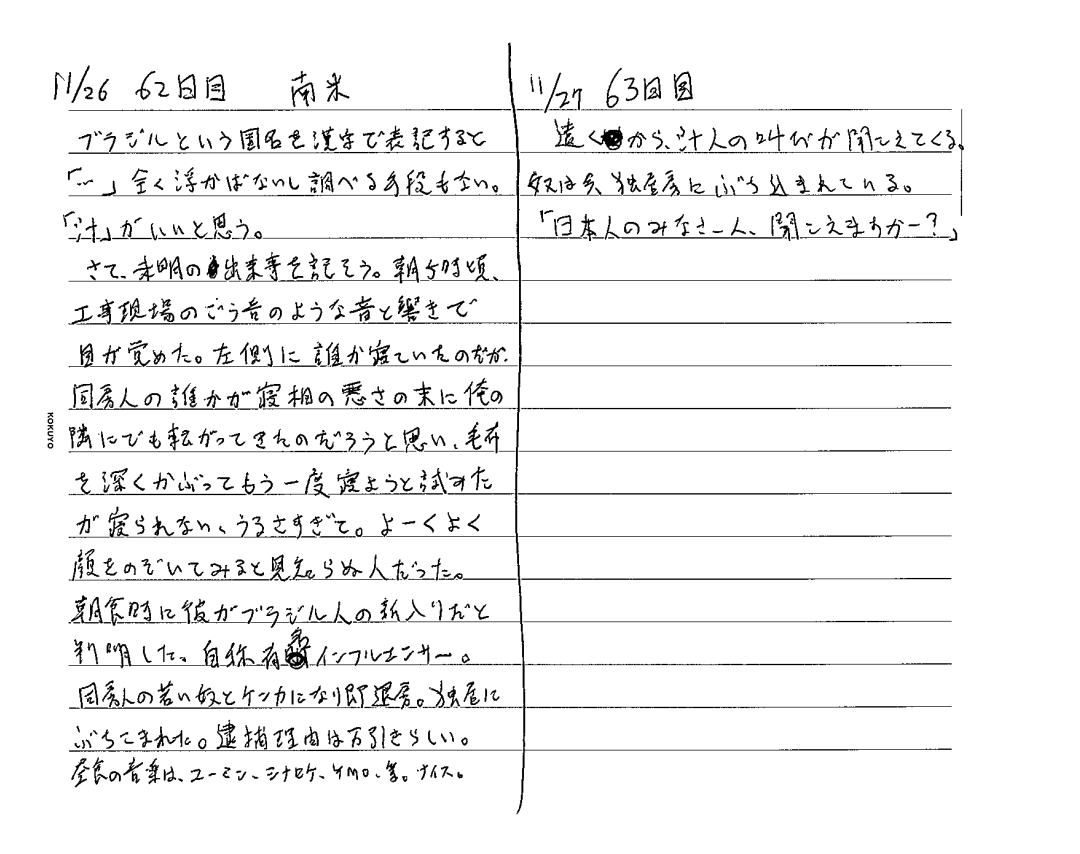 11/26 62日目 南米
ブラジルという国名を漢字で表記すると
「…」全く浮かばないし調べる手段もない。
「汁」がいいと思う。
さて、未明の出来事を記そう。朝5時頃、
工事現場のごう音のような音と響きで
目が覚めた。左側に誰か寝ていたのだが、
同房人の誰かが寝相の悪さの末に俺の
隣にでも転がってきたのだろうと思い、毛布
を深くかぶってもう一度寝ようと試すた
が寝られない、うるさすぎて。よーくよく
顔をのぞいてみると見知らぬ人だった。
朝食時に彼がブラジル人の新入りだと
判明した。自称有名インフルエンサー。
同房人の若い奴とケンカになり即退房。独居に
ぶちこまれた。逮捕理由は万引きらしい。
昼食の音楽は、ユーミン、シナロケ、YMO、等。ナイス。
11/27 63日目
遠くから、汁人の叫びが聞こえてくる。
奴は今、独居房にぶち込まれている。
「日本人のみなさーん、聞こえますかー？」
KOKUYO